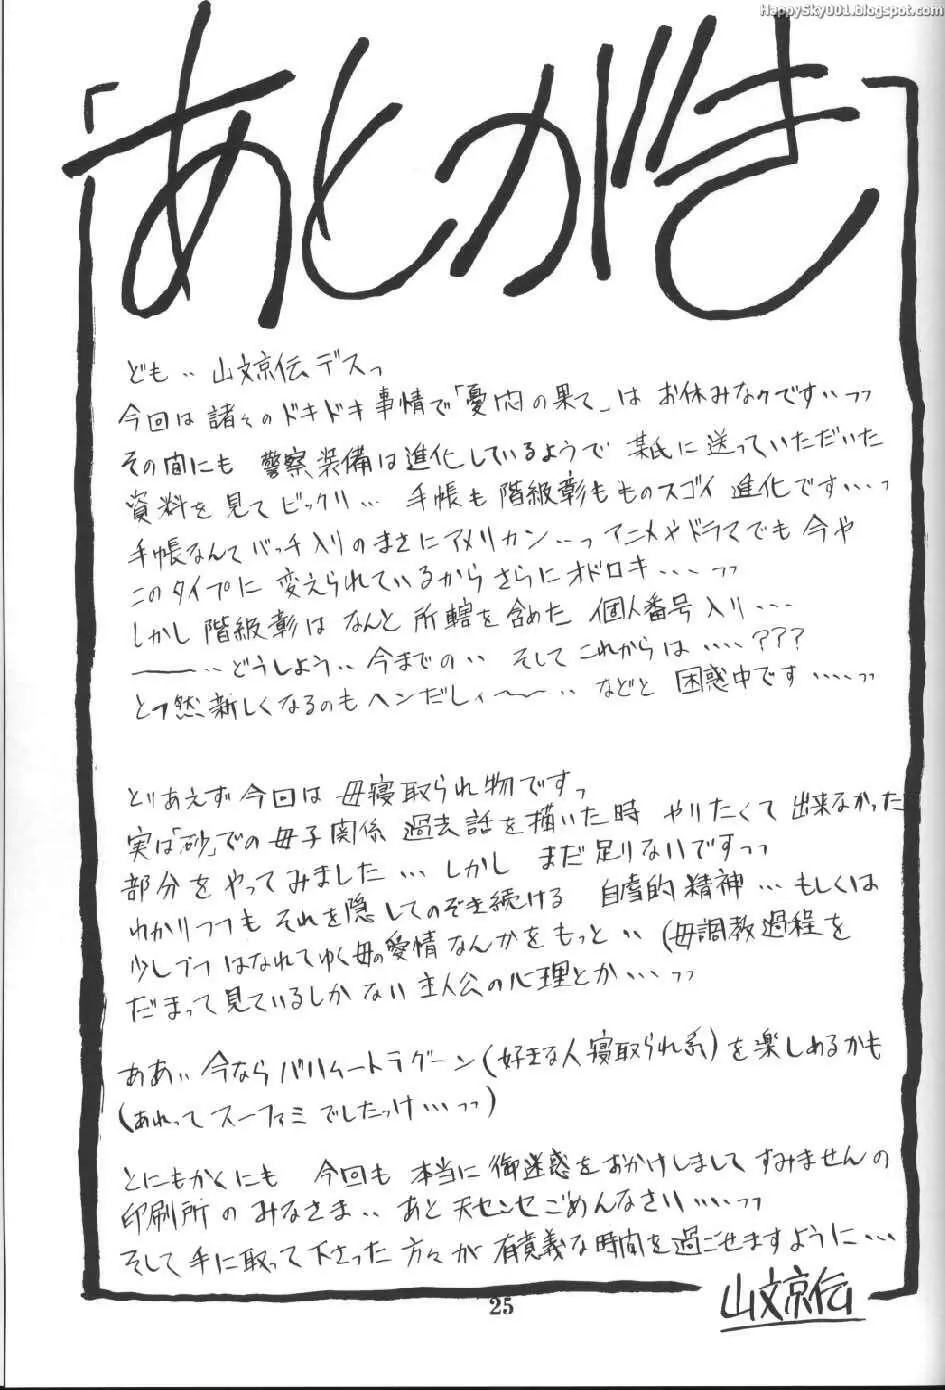 HappySky001.blogspot.com
あとがき
ども‥山文京伝デスっ
今回は諸々のドキドキ事情で「憂悶の果て」はお休みなのです‥‥っっ
その間にも 警察装備は進化しているようで 某氏に送っていただいた
資料を見てビックリ… 手帳も階級彰もものスゴイ進化です…っ
手帳なんてバッチ入りのまさにアメリカン…っアニメやドラマでも今や
このタイプに変えられているからさらにオドロキ‥‥っっ
しかし階級彰はなんと所轄を含めた 個人番号入り…
――‥どうしよう‥今までの‥ そしてこれからは‥‥???
とつ然新しくなるのもヘンだしィ〜〜‥などと 困惑中です‥‥‥っっ
とりあえず今回は母寝取られ物ですっ
実は「砂」での母子関係 過去話を描いた時 やりたくて出来なかった
部分をやってみました…しかし まだ足りないですっっ
わかりつつもそれを隠してのぞき続ける 自虐的精神…もしくは
少しづつはなれてゆく母の愛情なんかをもっと‥(母調教過程を
だまって見ているしかない主人公の心理とか‥‥っっ
ああ‥今ならバハムートラグーン(好きな人寝取られ系)を楽しめるかも
(あれってスーファミでしたっけ‥‥っっ)
とにもかくにも 今回も本当に御迷惑をおかけしましてすみませんの
印刷所のみなさま‥あと天センセごめんなさい‥‥っっ
そして手に取って下さった方々が有意義な時間を過ごせますように…
25
山文京伝